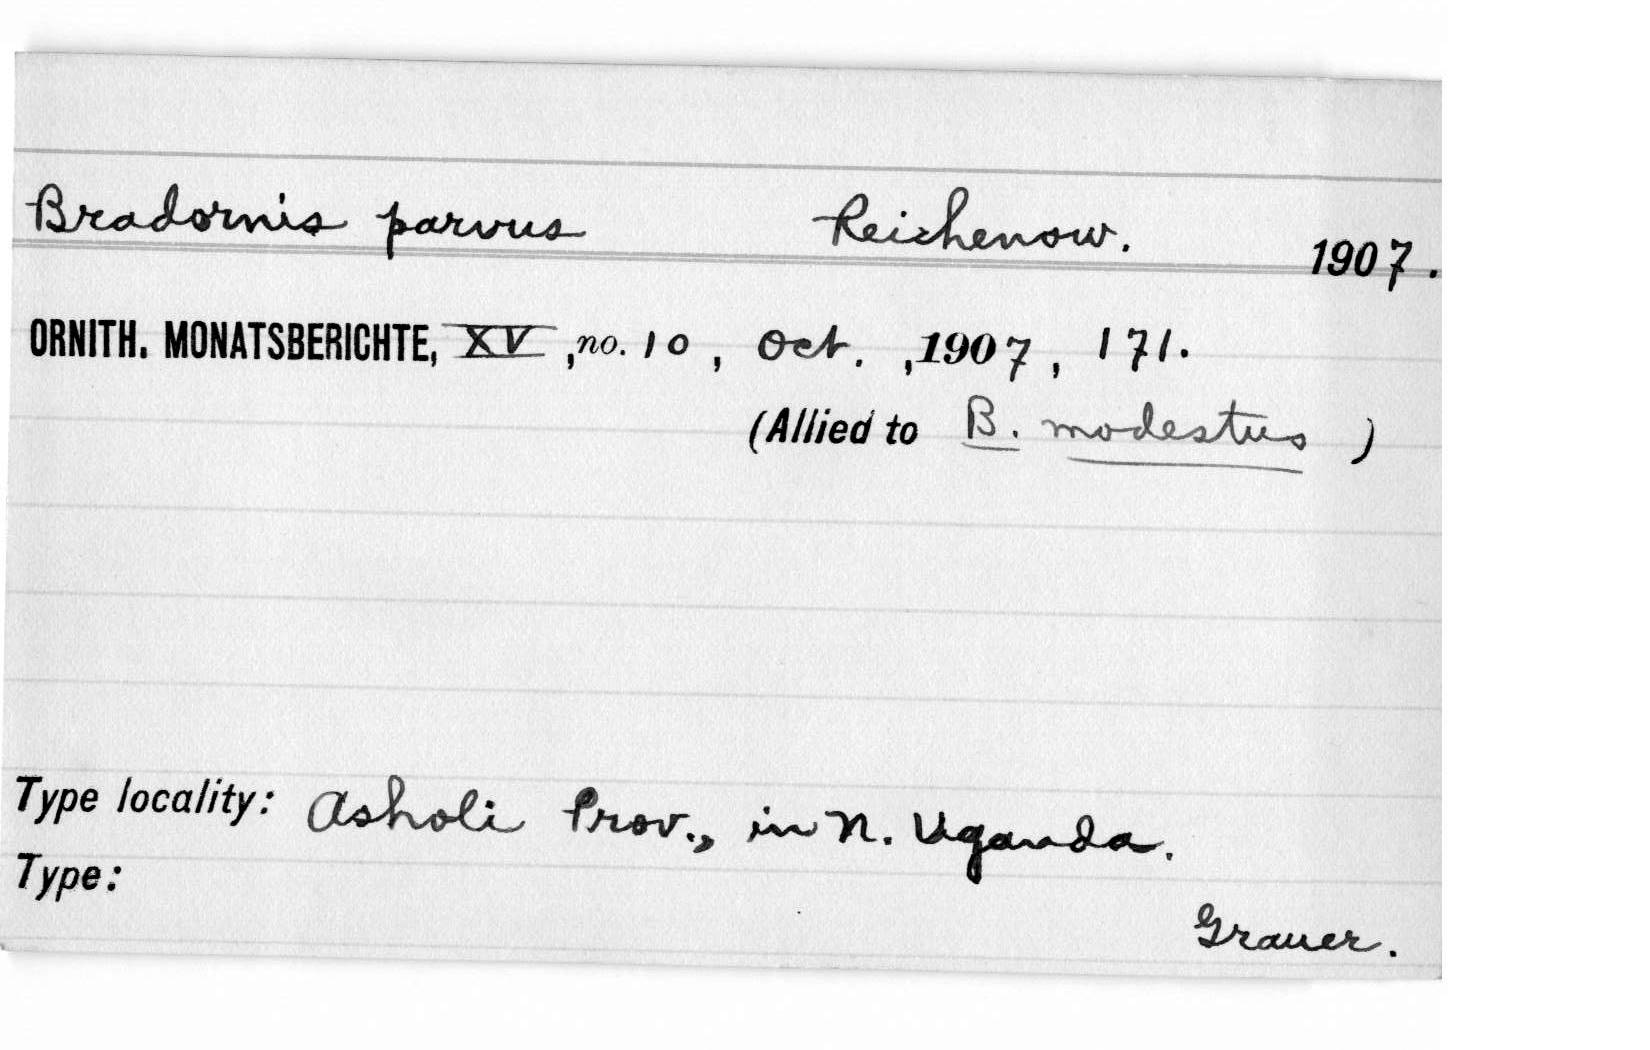 Bradornis parvus Reichenow. 1907.
ORNITH. MONATSBERICHTE, XV, no. 10, Oct., 1907, 171.
(Allied to B. modestus)
Type locality: Asholi Prov., in N. Uganda.
Type:
Grauer.